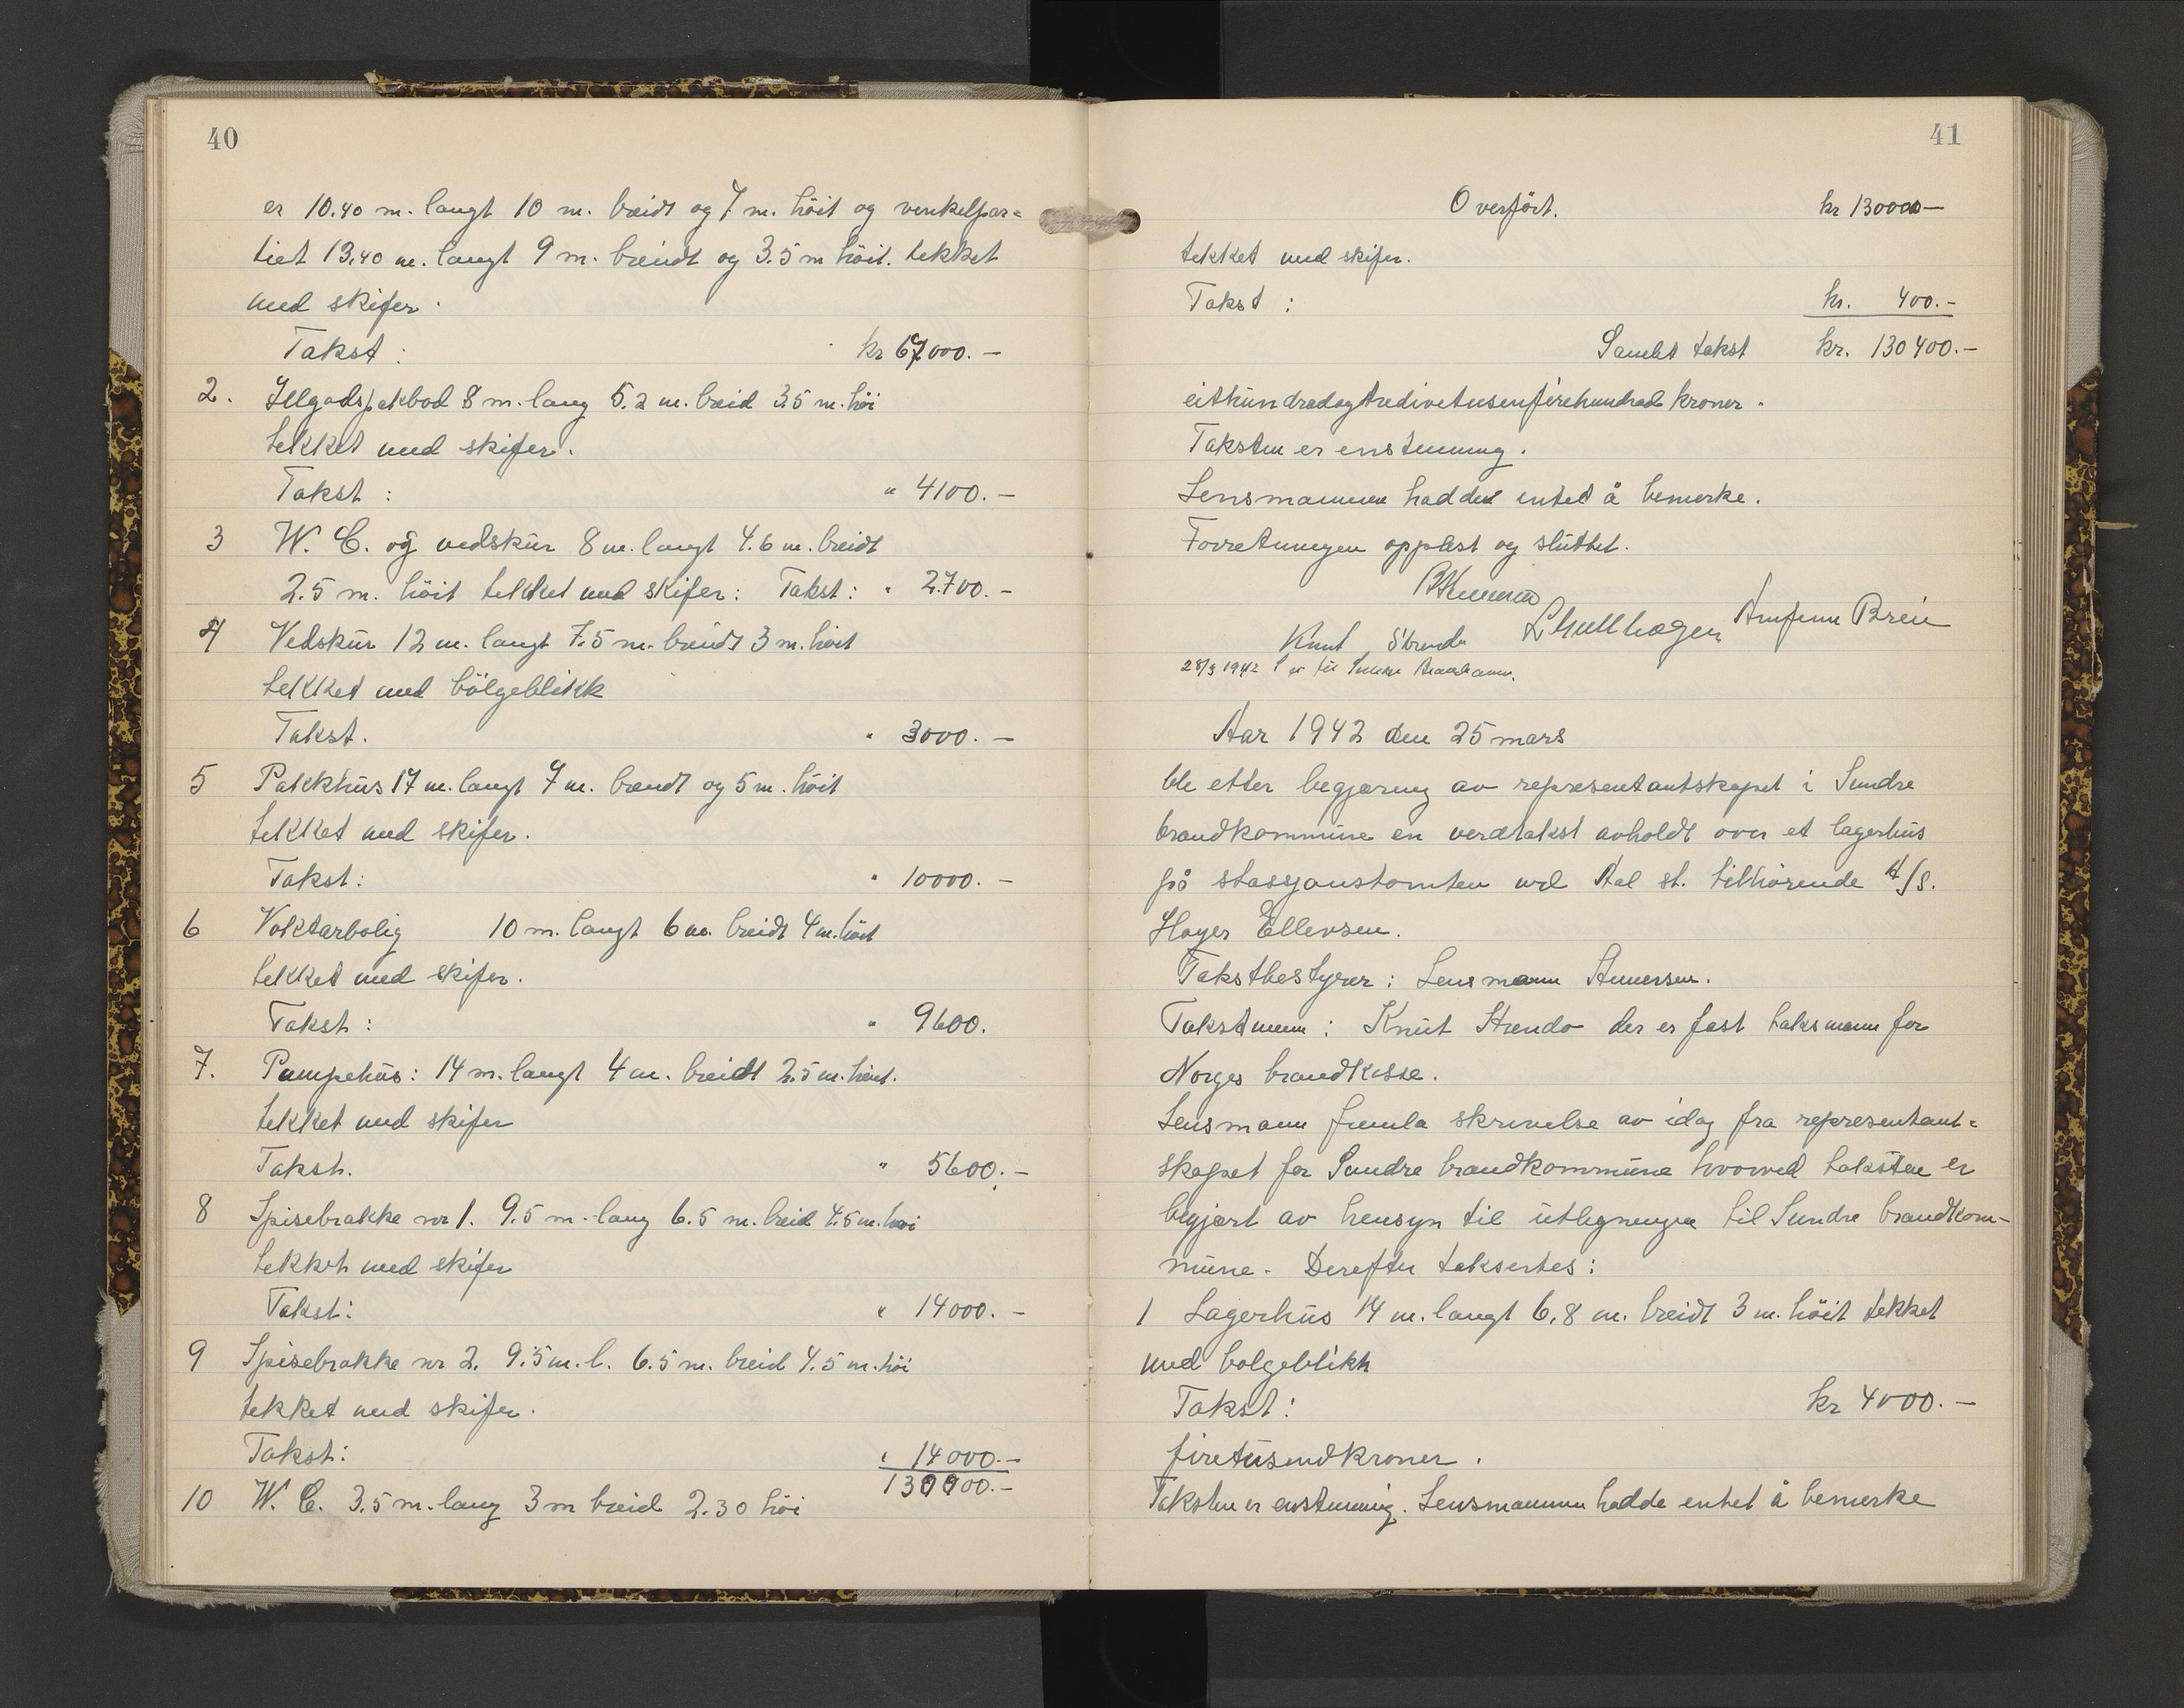 40
er 10.40 m. langt 10 m. breidt og 7 m. höit og venkelpar=
tiet 13.40 m. langt 9 m. breidt og 3.5 m höit. tekket
med skifer.
Takst: kr 67000.-
2. Ilgodspakbod 8 m. lang 5.2 m. breid 3.5 m. höi
tekket med skifer.
Takst: " 4100.-
3 W. C. og vedskur 8 m. langt 4.6 m. breidt
2.5 m. höit tekket med skifer: Takst: " 2700.-
4 Vedskur 12 m. langt 7.5 m. breidt 3 m. höit
tekket med bölgeblikk
Takst. " 3000.-
5 Pakkhus 17 m. langt 7 m. breidt og 5 m. höit
tekket med skifer.
Takst: " 10000.-
6 Voktarbolig 10 m. langt 6 m. breidt 4 m. höit
tekket med skifer.
Takst: " 9600.
7. Pumpehus: 14 m. langt 4 m. breidt 2.5 m. höit.
tekket med skifer
Takst. " 5600.-
8 Spisebrakke nr 1. 9.5 m. lang 6.5 m. breid 4.5 m. höi
tekket med skifer
Takst: " 14000.-
9 Spisebrakke nr 2. 9.5 m. l. 6.5 m. breid 4.5 m. höi
tekket med skifer.
Takst: " 14000.-
130000.-
10 W. C. 3.5 m. lang 3 m breid 2.30 höi
41
Overfört. kr 130000-
tekket med skifer.
Takst: kr. 400.-
Samlet takst kr. 130400.-
eithundradogtredivetusenfirehundrad kroner.
Taksten er enstemmig.
Lensmannen hadde intet å bemerke.
Forretningen opplest og sluttet.
Knut Strende L Gullhagen Arnfinn Breie
28/3 1942
Aar 1942 den 25 mars
ble etter begjæring av representantskapet i Sundre
brandkommune en verdtakst avholdt over et lagerhus
på stasjonstomten ved Aal st. tilhörende A/S.
Høyer Ellevsen.
Takstbestyrer: Lensmann Amersen.
Takstmenn: Knut Strende der er fast taksmann for
Norges brandkasse.
Lensmann fremla skrivelse av idag fra representant=
skapet for Sundre brandkommune hvorved taksten er
begjært av hensyn til utligningen til Sundre brandkom-
mune. Derefter taksertes:
1 Lagerhus 14 m. langt 6,8 m. breidt 3 m. höit tekket
med bolgeblikk
Takst: kr 4000.-
firetusendkroner.
Taksten er enstemmig. Lensmannen hadde entet å bemerke